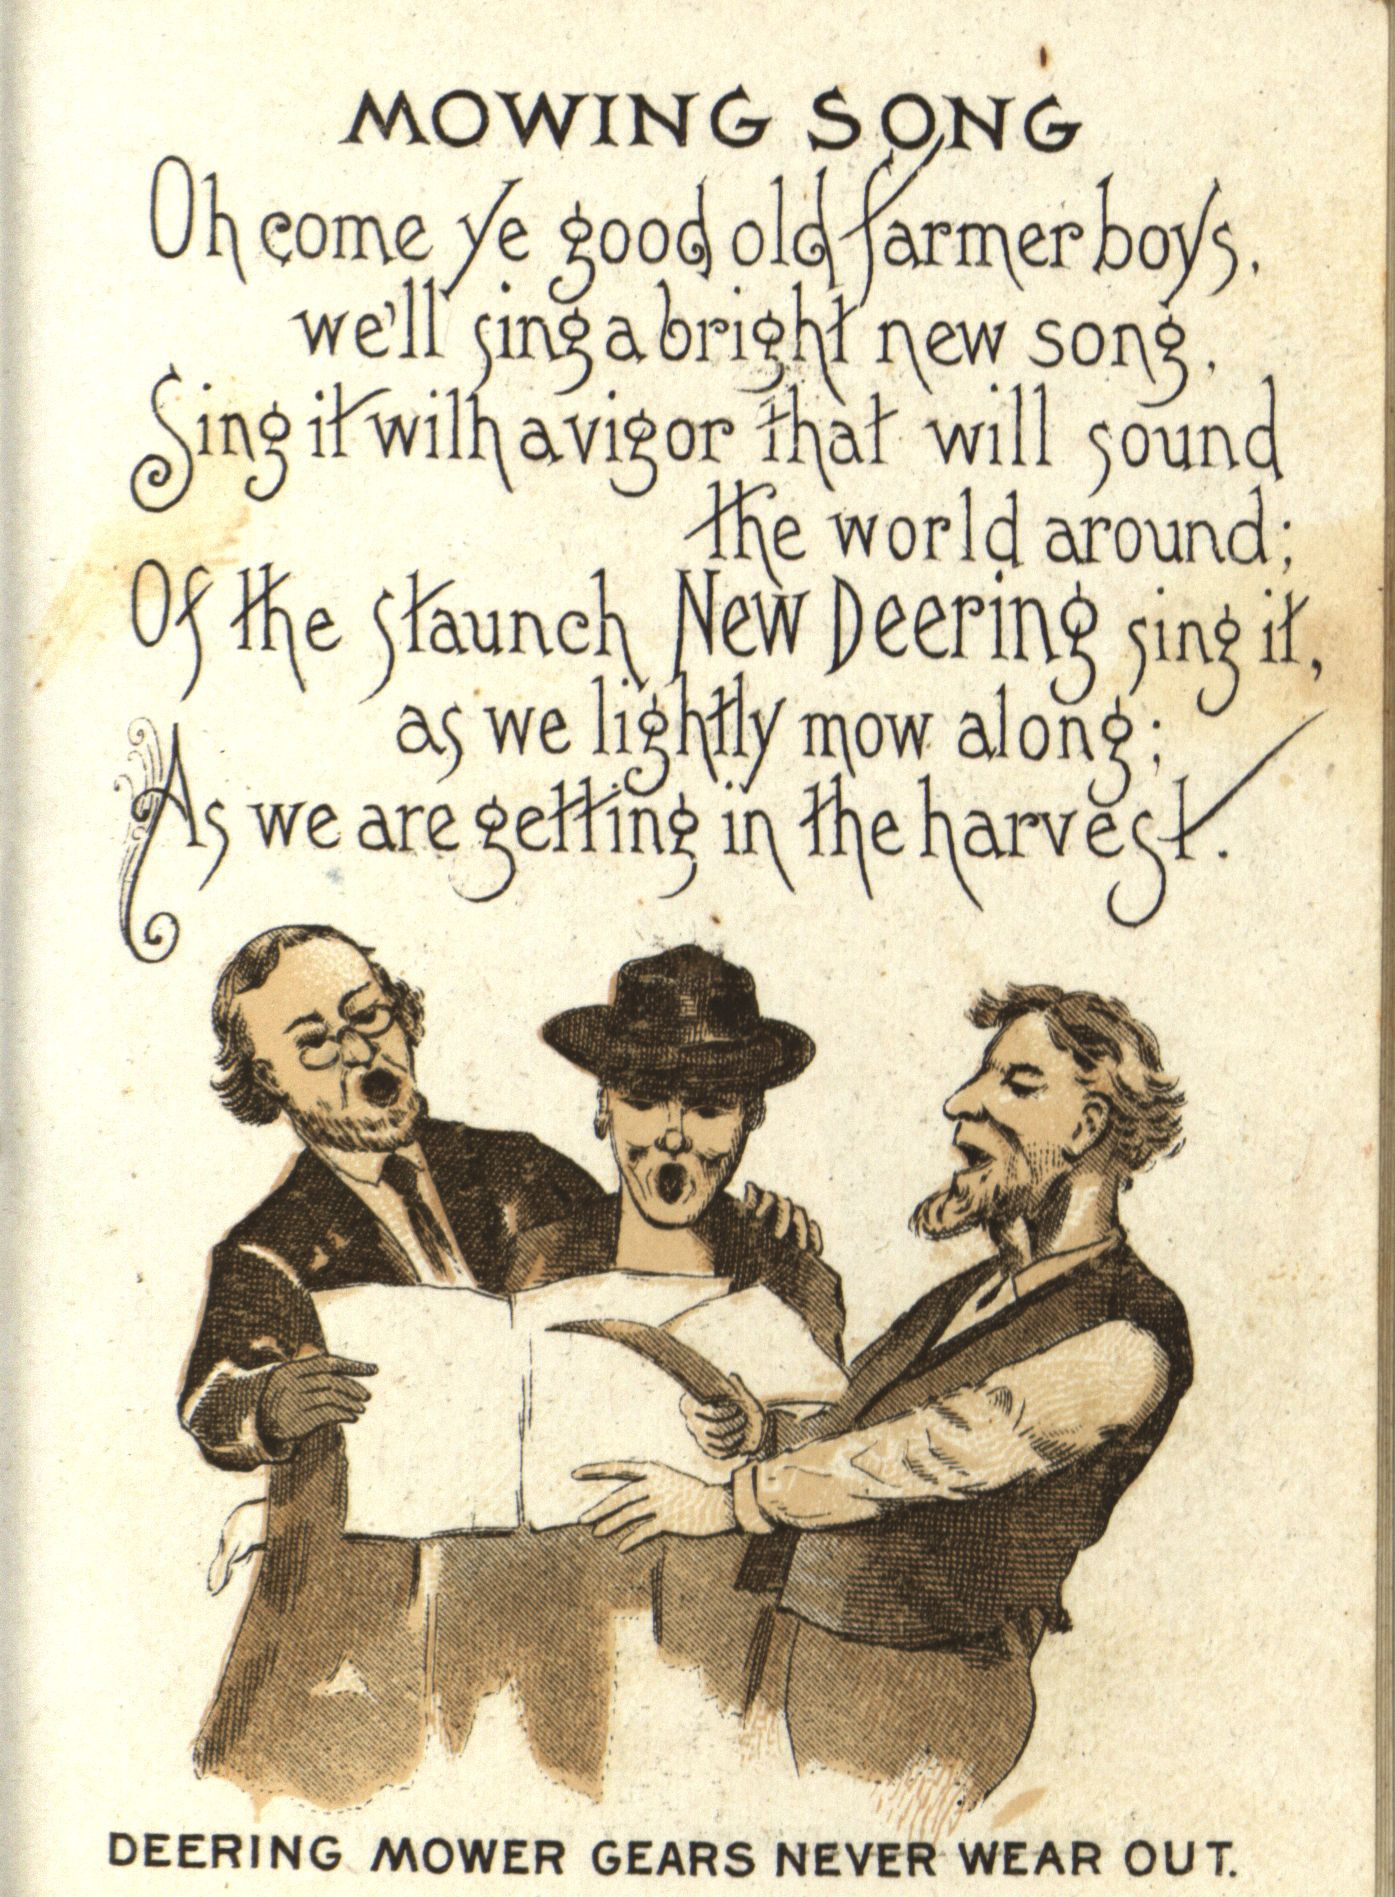 MOWING SONG
Oh come ye good old farmer boys,
we'll sing a bright new song,
Sing it with a vigor that will sound
the world around;
Of the staunch New Deering sing it,
as we lightly mow along;
As we are getting in the harvest.
DEERING MOWER GEARS NEVER WEAR OUT.